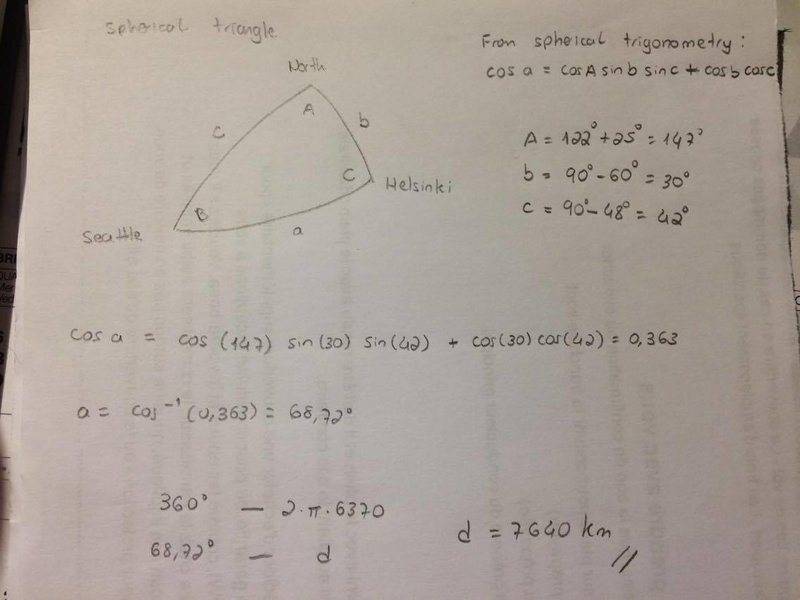 spherical triangle
North
A
b
c
C
Helsinki
B
Seattle
a
From spherical trigonometry:
cos a = cosA sin b sin c + cos b cos c
A = 122° + 25° = 147°
b = 90° - 60° = 30°
c = 90° - 48° = 42°
cos a = cos (147) sin (30) sin (42) + cos(30) cos (42) = 0,363
a = cos⁻¹ (0,363) = 68,72°
360° — 2·π·6370
68,72° — d
d = 7640 km //